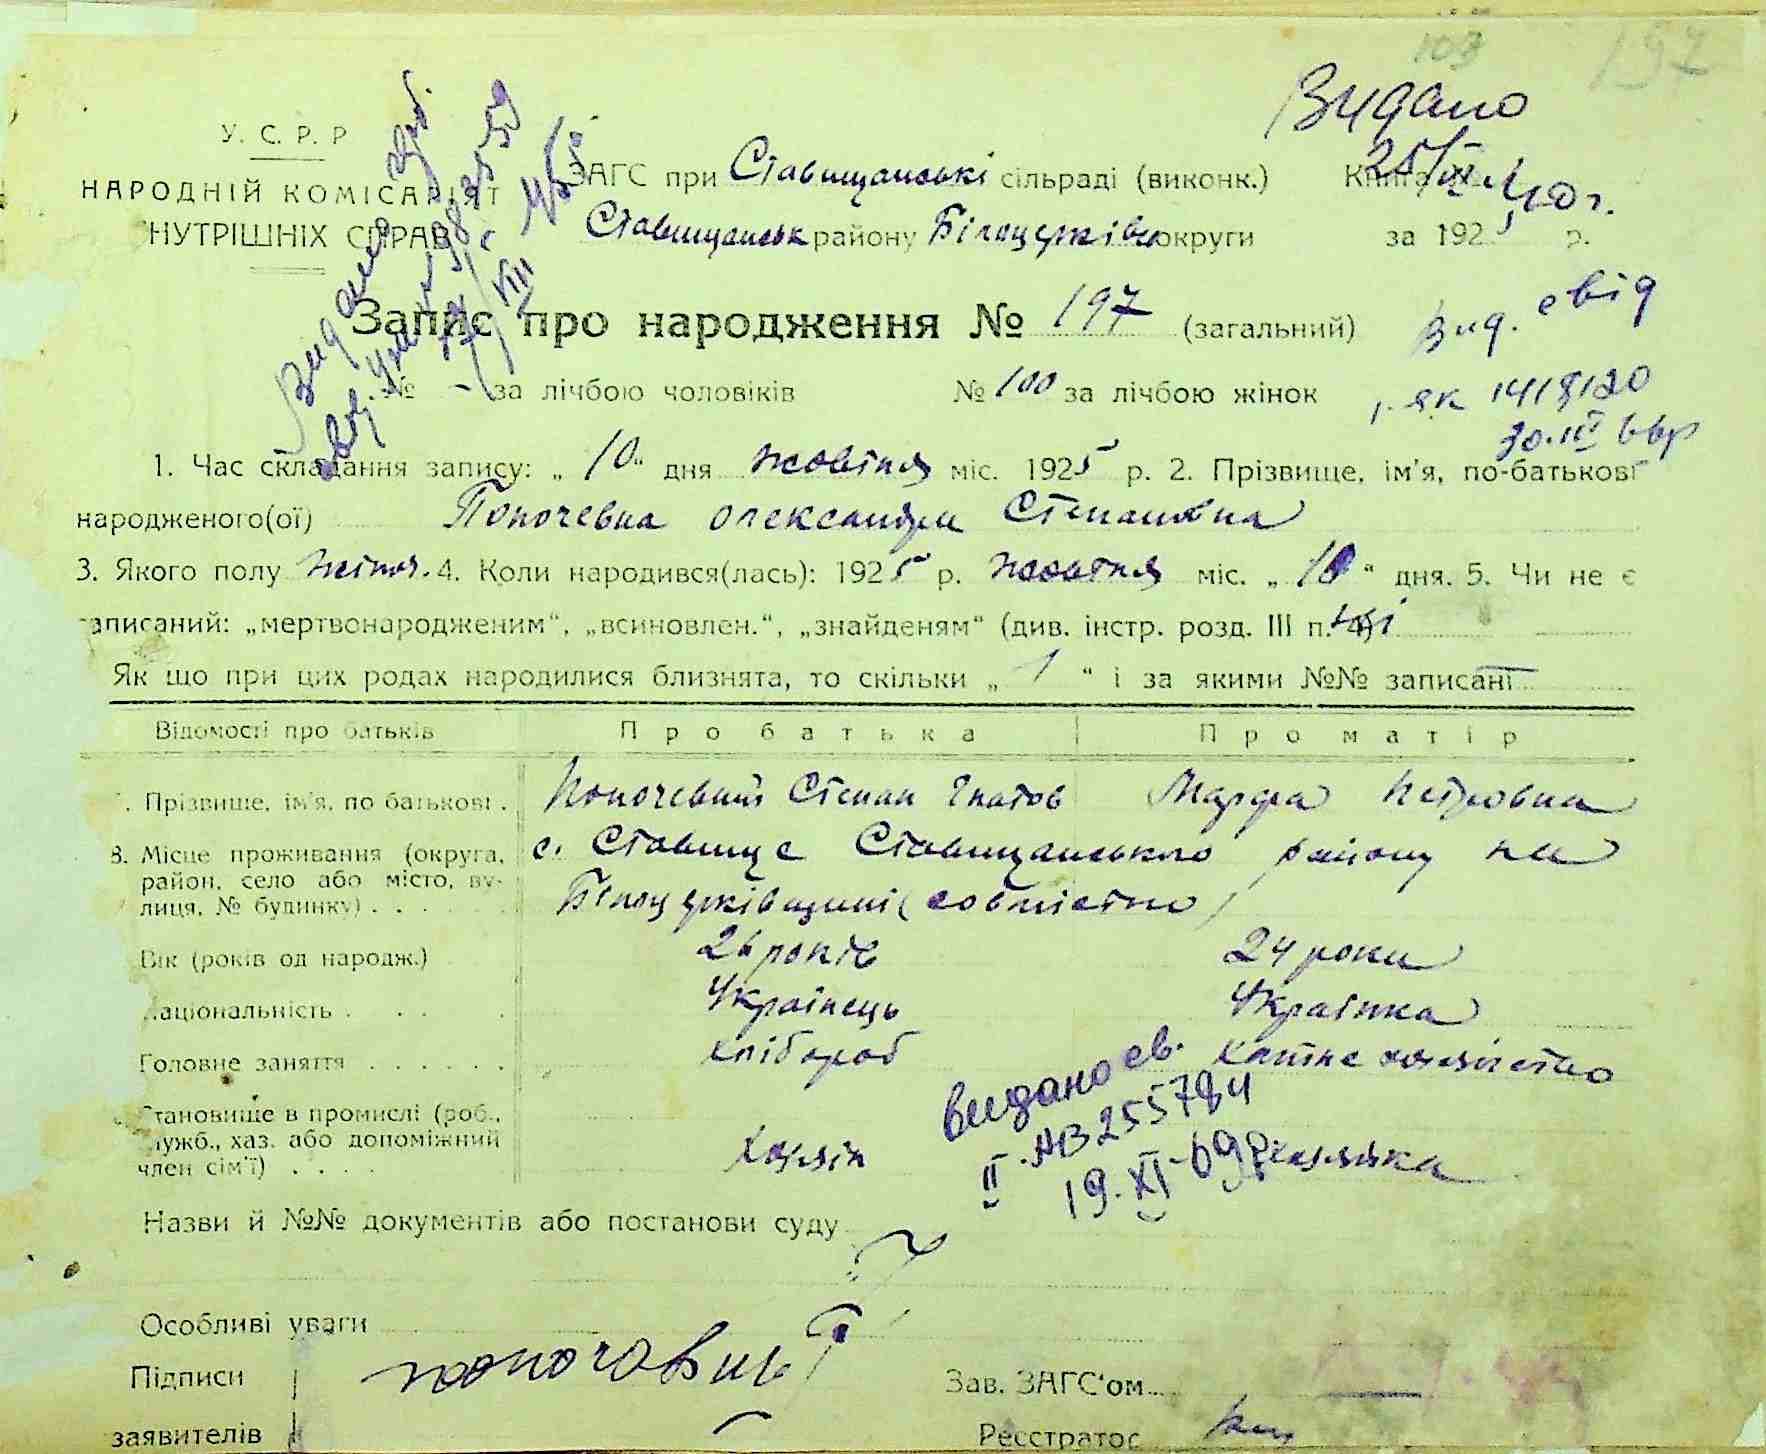 103 197
Видано
25/VI-40 г.
У. С. Р. Р
НАРОДНІЙ КОМІСАРІЯТ
НУТРІШНІХ СПРАВ
ЗАГС при Ставищанські сільраді (виконк.) Книга
Ставищанськ району Білоцерківс округи за 1925 р.
Запис про народження № 197 (загальний)
Вид. свід
№ - за лічбою чоловіків № 100 за лічбою жінок
1. Час складання запису: „ 10 “ дня жовтня міс. 1925 р. 2. Прізвище, ім'я, по-батькові
народженого(ої) Попочевна Олександра Степановна
3. Якого полу жіноч. 4. Коли народився(лась): 1925 р. жовтня міс. „ 10 “ дня. 5. Чи не є
записаний: „мертвонародженим“, „всиновлен.“, „знайденям“ (див. інстр. розд. III п. 4) ні
Як що при цих родах народилися близнята, то скільки „ 1 “ і за якими №№ записані —
Відомості про батьків Про батька Про матір
Прізвище, ім'я, по батькові . Попочевний Степан Гнатов Марфа Петровна
8. Місце проживання (округа, с. Ставище Ставищанського району на
район, село або місто, ву-
лиця, № будинку) . . . . . Білоцерківщині (совмістно)
Вік (років од народж.) 26 років 24 роки
Національність . . . . Українець Українка
Головне заняття . . . . . . хлібороб хатнє хозяйство
Становище в промислі (роб.,
служб., хаз. або допоміжний
член сім'ї) . . . . Хозяїн Хозяйка
видано св.
II-АВ 255784
19.XI-69р
Назви й №№ документів або постанови суду
Особливі уваги
Підписи
заявителів
Зав. ЗАГС'ом
Реєстратор